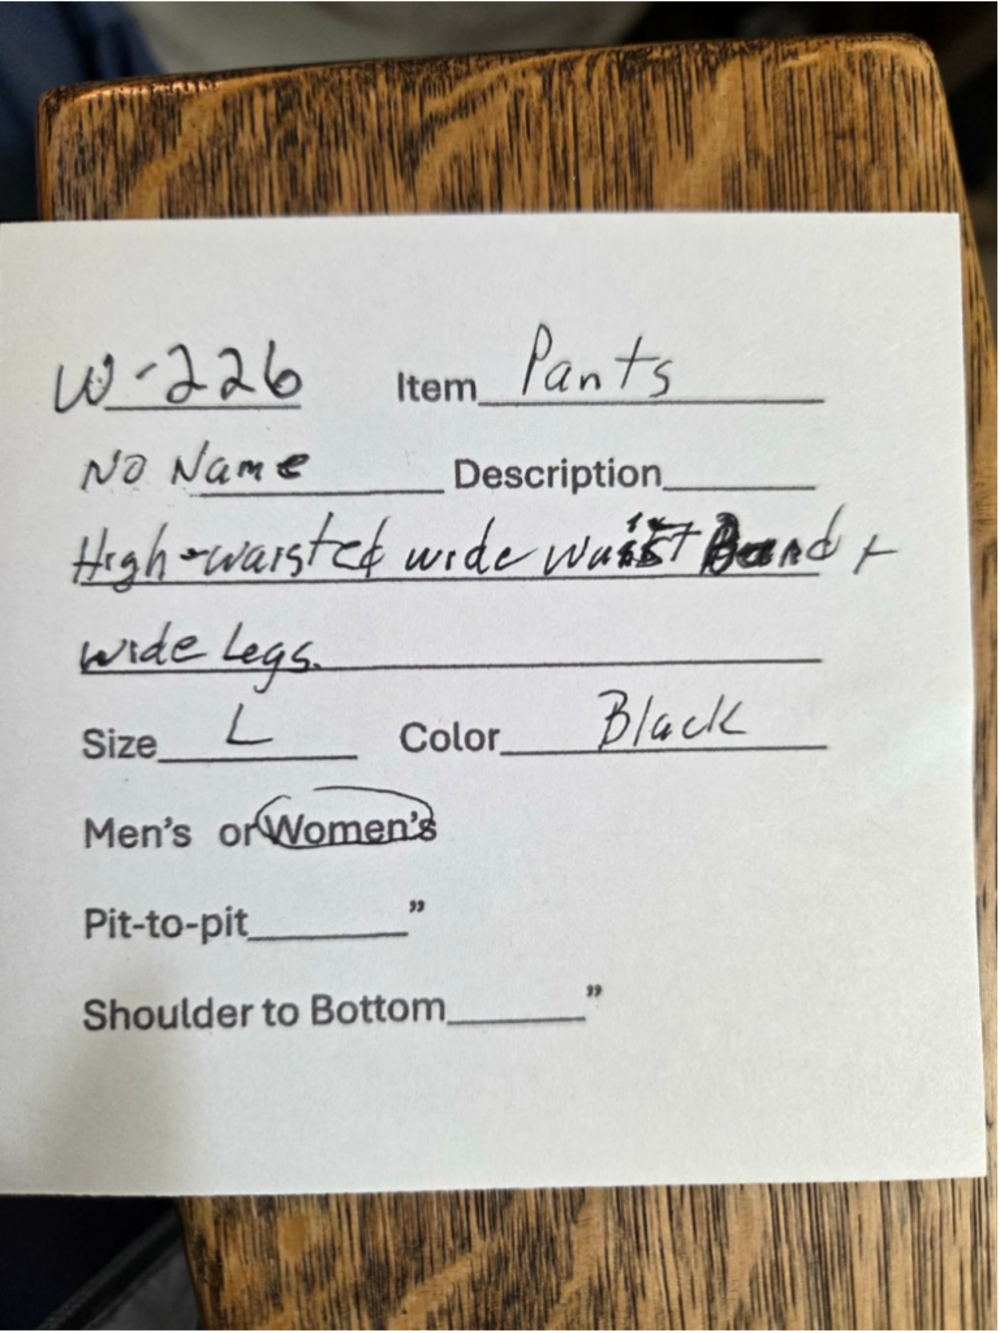 W-226 Item Pants
No Name Description
High-waisted wide waist Band +
wide Legs.
Size L Color Black
Men's or Women's
Pit-to-pit "
Shoulder to Bottom "